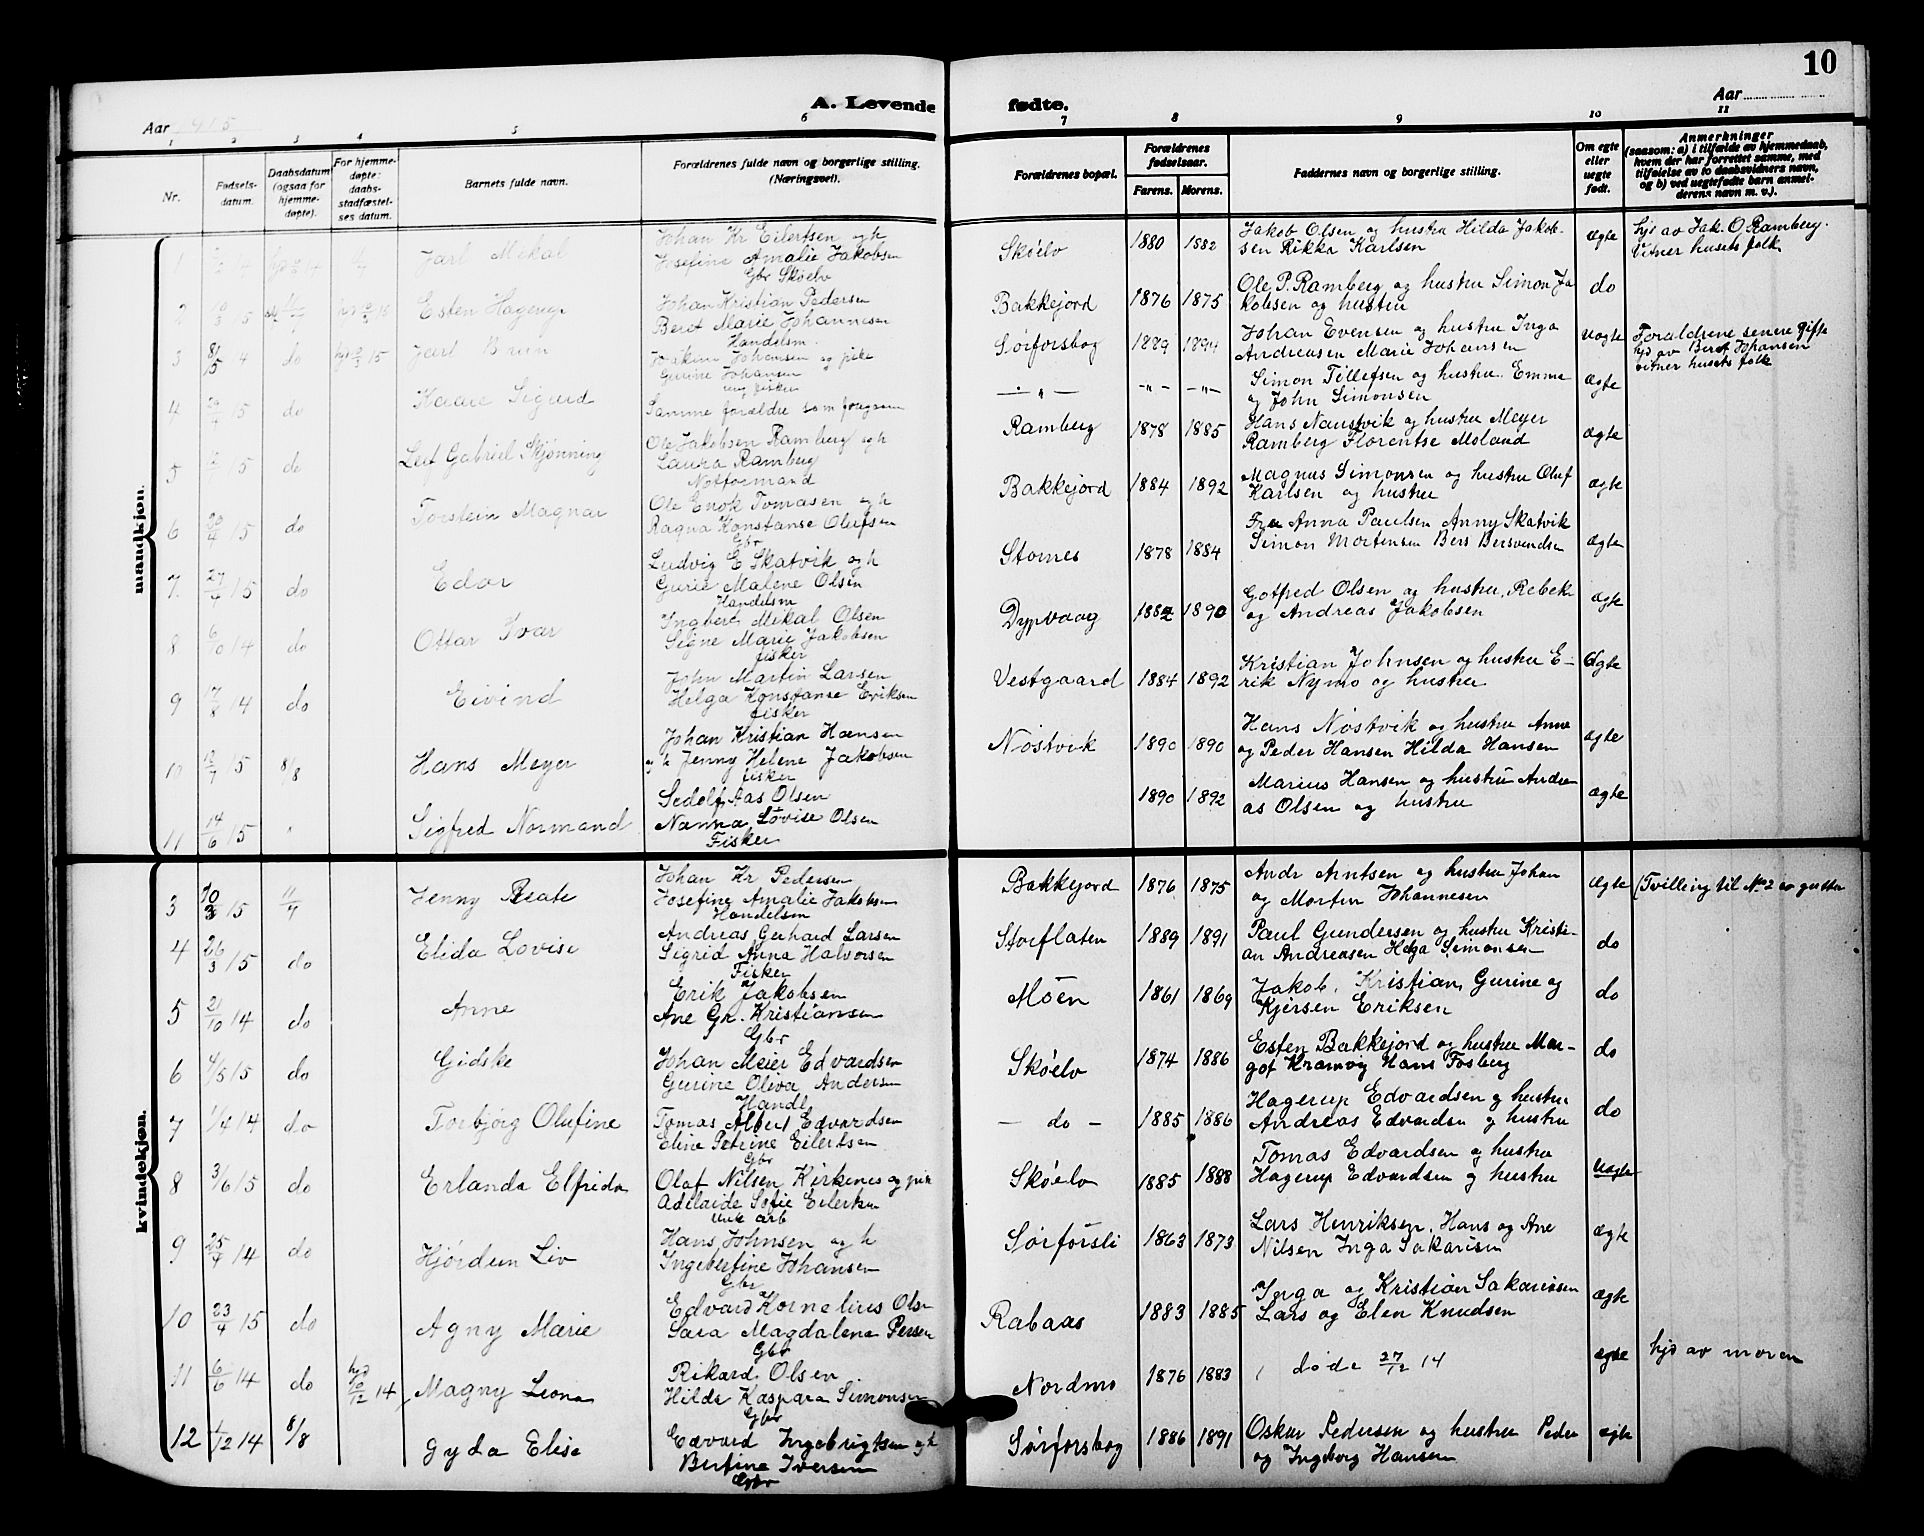 10
A. Levende fødte.
Aar 1915
Aar
1 2 3 4 5 6 7 8 9 10 11
Nr.
Fødsels-
datum.
Daabsdatum
(ogsaa for
hjemme-
døpte).
For hjemme-
døpte:
daabs-
stadfæstel-
ses datum.
Barnets fulde navn.
Forældrenes fulde navn og borgerlige stilling.
(Næringsvei).
Forældrenes bopæl.
Forældrenes
fødselsaar.
Farens. Morens.
Faddernes navn og borgerlige stilling.
Om egte
eller
uegte
født.
Anmerkninger
(saasom: a) i tilfælde av hjemmedaab,
hvem der har forrettet samme, med
tilføielse av to daabsvidners navn,
og b) ved uegtefødte barn anmel-
derens navn m. v.).
mandkjøn.
1 Jarl Mikal
Johan Kr Eilertsen og h
Josefine Amalie Jakobsen
Gbr Skøelv
Skøelv 1880 1882
Jakob Olsen og hustru Hilda Jakob-
sen Rikka Karlsen
ægte
hjd av Jak. O. Ramberg.
Vitner husets folk
2 10/3 15 Esten Hagerup
Johan Kristian Pedersen
Beret Marie Johannesen
Handelsm.
Bakkejord 1876 1875
Ole P. Ramberg og hustru Simon Ja
kobsen og hustru
do
3 8/5 4 do Jarl Bruun
Joakim Johansen og pike
Gurine Johansen
ung fisker
Sørforsbog 1889 1894
Johan Evensen og hustru Inga
Andreasen Marie Johansen
uægte
Forældrene senere gifte
hjd av Beret Johansen
vitner husets folk
4 15 do Kaare Sigurd
Samme forældre som foregaaende
— " — -"- -"-
Simon Tillefsen og hustru. Emma
og John Simonsen
ægte
5 15 do Leif Gabriel Skjønning
Ole Jakobsen Ramberg og h
Laura Ramberg
Notformand
Ramberg 1878 1885
Hans Naustvik og hustru Meyer
Ramberg Florentse Moland
ægte
6 20/4 15 do Torstein Magnar
Ole Enok Tomasen og h
Ragna Konstanse Olufsen
Gbr
Bakkejord 1884 1892
Magnus Simonsen og hustru Oluf
Karlsen og hustru
ægte
7. 27/4 15 do Edor
Ludvig E Skatvik og h
Gurie Malene Olsen
Handelsm
Stomes 1878 1884
Fru Anna Paulsen Anny Skatvik
Simon Mortensen Bers Bersvendsen
ægte
8 6/10 14 do Ottar Ivar
Ingbert Mikal Olsen
Signe Marie Jakobsen
fisker
Dypvaag 1882 1890
Gotfred Olsen og hustru, Rebeka
og Andreas Jakobsen
ægte
9 17/8 14 do Eivind
John Martin Larsen
Helga Konstanse Eriksen
fisker
Vestgaard 1884 1892
Kristian Johnsen og hustru E-
rik Nymo og hustru
ægte
10 12/7 15 8/8 Hans Meyer
Johan Kristian Hansen
og h Jenny Helene Jakobsen
fisker
Nøstvik 1890 1890
Hans Nøstvik og hustru Anne
og Peder Hansen Hilda Hansen
ægte
11 14/6 15 " Sigfred Normand
Sedolf Aas Olsen
Nanna Lovise Olsen
Fisker
1890 1892
Marius Hansen og hustru Andre
as Olsen og hustru
ægte
kvindekjøn.
3 10/3 15 11/7 Jenny Beate
Johan Kr Pedersen
Josefine Amalie Jakobsen
Handelsm
Bakkejord 1876 1875
Andr Arntsen og hustru Johan
og Morten Johannesen
ægte
(Tvilling til No 2 av gutter
4 26/3 15 do Elida Lovise
Andreas Gerhard Larsen
Sigrid Anna Halvorsen
Fisker
Storflaten 1889 1891
Paul Gundersen og hustru Kristi-
an Andreasen Helga Simonsen
do
5 21/10 14 do Anne
Erik Jakobsen
Ane Gr. Kristiansen
Gbr
Moen 1861 1869
Jakob, Kristian, Gurine og
Kjersen Eriksen
do
6 4/5 15 do Gidske
Johan Meier Edvardsen
Gurine Oliva Andersen
Handl
Skøelv 1874 1886
Esten Bakkejord og hustru Mar-
got Kramvig Hans Fosberg
do
7 1/4 14 do Torbjørg Olufine
Tomas Albert Edvardsen
Eline Petrine Eilertsen
Gbr
— do — 1885 1886
Hagerup Edvardsen og hustru
Andreas Edvardsen og hustru
do
8 3/6 15 do Erlanda Elfrida
Olaf Nilsen Kirkenes og pike
Adelaide Sofie Eilertsen
arb
Skøelv 1885 1888
Tomas Edvardsen og hustru
Hagerup Edvardsen og hustru
uægte
9 25/7 14 do Hjørdun Liv
Hans Johnsen og h
Ingebertine Johansen
Gbr
Sørforsli 1863 1873
Lars Henriksen, Hans og Ane
Nilsen Inga Sakariasen
ægte
10 23/4 15 do Agny Marie
Edvard Kornelius Olsen
Sara Magdalena Persen
Gbr
Rabaas 1883 1885
Inga og Kristian Sakariasen
Lars og Elen Knudsen
ægte
11 6/6 14 do hjd 10/12 14 Magny Leona
Rikard Olsen
Hilda Kaspara Simonsen
Gbr
Nordmo 1876 1883
døde 27/12 14
ægte
hjd av moren
12 1/12 14 8/8 Gyda Elise
Edvard Ingebrigtsen og h
Bertine Iversen
Gbr
Sørforsbog 1886 1891
Oskar Pedersen og hustru Peder
og Ingeborg Hansen
ægte